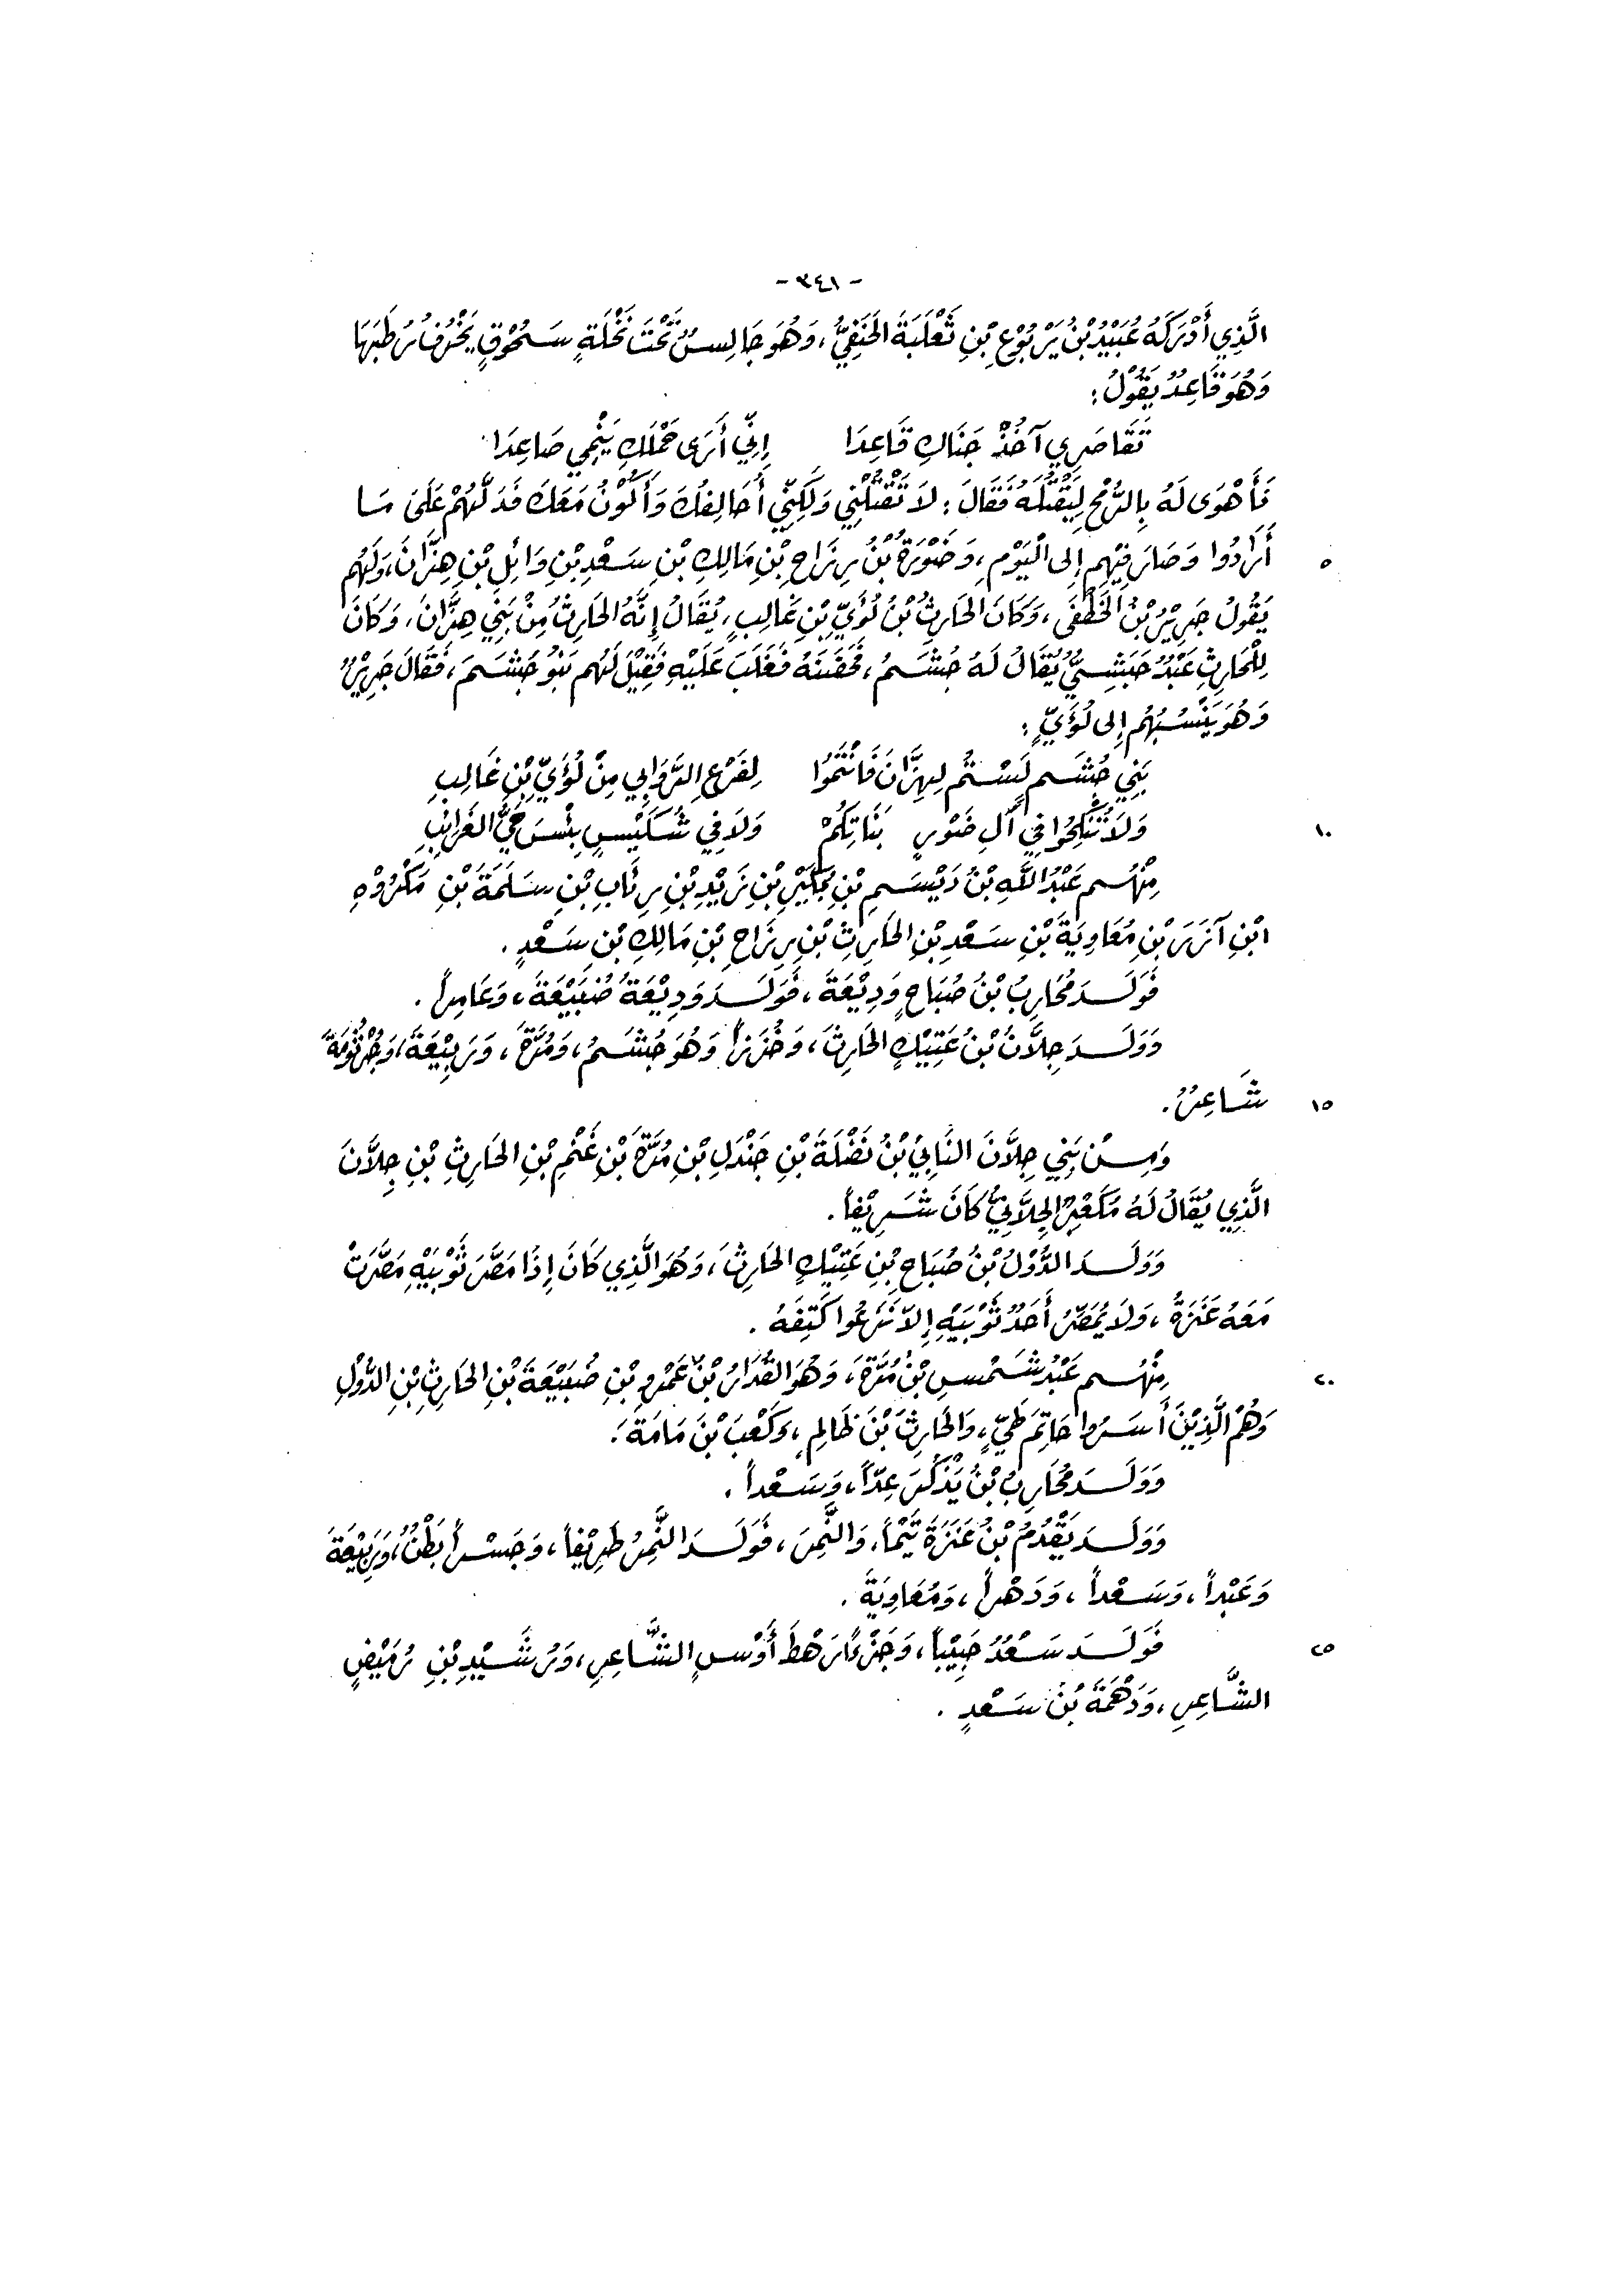 - ٣٤١ -
الَّذِي أَدْرَكَهُ عُبَيْدُ بْنُ يَرْبُوْعِ بْنِ ثَعْلَبَةَ الحَنَفِيُّ، وَهُوَ جَالِسٌ تَحْتَ نَخْلَةٍ سَحُوْقٍ يَخْرُفُ رُطَبَهَا
وَهُوَ قَاعِدٌ يَقُوْلُ:
تَقَاصَرِي آخُذْ جَنَاكِ قَاعِدَا إِنِّي أَرَى حَمْلَكِ يَنْمِي صَاعِدَا
فَأَهْوَى لَهُ بِالرُّمْحِ لِيَقْتُلَهُ فَقَالَ: لاَ تَقْتُلْنِي وَلَكِنِّي أُحَالِفُكَ وَأَكُوْنُ مَعَكَ فَدَلَّهُمْ عَلَى مَا
٥ أَرَادُوا وَصَارَ فِيْهِم إِلى الْيَوْمِ، وَضَوْرَةُ بْنُ رِزَاحِ بْنِ مَالِكِ بْنِ سَعْدِ بْنِ وَائِلِ بْنِ هِزَّانَ، وَلَهُم
يَقُولُ جَرِيْرُ بْنُ الخَطَفَى، وَكَانَ الحَارِثُ بْنُ لُؤَيِّ بْنِ غَالِبٍ، يُقَالُ إِنَّهُ الحَارِثُ مِنْ بَنِي هِزَّانَ، وَكَانَ
لِلْحَارِثِ عَبْدٌ حَبَشِيٌّ يُقَالُ لَهُ جُشَمُ، فَحَضَنَهُ فَغَلَبَ عَلَيْهِ فَقِيْلَ لَهُم بَنُو جُشَمَ، فَقَالَ جَرِيْرٌ
وَهُوَ يَنْسُبُهُم إِلى لُؤَيٍّ:
بَنِي جُشَمٍ لَسْتُم لِهِزَّانَ فَانْتَمُوا لِفَرْعِ الرَّوَابِي مِنْ لُؤَيِّ بْنِ غَالِبِ
١٠ وَلاَ تُنْكِحُوا فِي آلِ ضَوْرٍ بَنَاتِكُمْ وَلاَ فِي شُكَيْسٍ بِئْسَ حَيُّ الغَرَائِبِ
مِنْهُم عَبْدُ اللَّهِ بْنُ دَيْسَمِ بْنِ بُكَيْرِ بْنِ زَيْدِ بْنِ رِئَابِ بْنِ سَلَمَةَ بْنِ مَكْرُوْهِ
ابْنِ آزَرَ بْنِ مُعَاوِيَةَ بْنِ سَعْدِ بْنِ الحَارِثِ بْنِ رِزَاحِ بْنِ مَالِكِ بْنِ سَعْدٍ.
فَوَلَدَ مُحَارِبُ بْنُ صُبَاحٍ وَدِيْعَةَ، فَوَلَدَ وَدِيْعَةُ ضُبَيْعَةَ، وَعَامِراً.
وَوَلَدَ جِلاَّنُ بْنُ عَتِيْكٍ الحَارِثَ، وَخُزَزاً وَهُوَ جُشَمُ، وَمُرَّةَ، وَرَبِيْعَةَ، وَجُرْثُومَةَ
١٥ شَاعِرٌ.
وَمِنْ بَنِي جِلاَّنَ النَّابِيُّ بْنُ نَضْلَةَ بْنِ جَنْدَلِ بْنِ مُرَّةَ بْنِ غَنْمِ بْنِ الحَارِثِ بْنِ جِلاَّنَ
الَّذِي يُقَالُ لَهُ مُكَعْبِرٌ الجِلاَّنِيُّ كَانَ شَرِيْفاً.
وَوَلَدَ الدُّوْلُ بْنُ صُبَاحِ بْنِ عَتِيْكٍ الحَارِثَ، وَهُوَ الَّذِي كَانَ إِذَا مَصَّرَ ثَوْبَيْهِ مَصَّرَتْ
مَعَهُ عَنَزَةُ، وَلاَ يُمَصِّرُ أَحَدٌ ثَوْبَيْهِ إِلاَّ نَزَعُوا كَتِفَهُ.
٢٠ مِنْهُم عَبْدُ شَمْسِ بْنُ مُرَّةَ، وَهُوَ القُدَارُ بْنُ عَمْرِو بْنِ ضُبَيْعَةَ بْنِ الحَارِثِ بْنِ الدُّوْلِ
وَهُمُ الَّذِيْنَ أَسَرُوا حَاتِمَ طَيٍّ، وَالحَارِثَ بْنَ ظَالِمٍ، وَكَعْبَ بْنَ مَامَةَ.
وَوَلَدَ مُحَارِبُ بْنُ يَذْكُرَ عِدّاً، وَسَعْداً.
وَوَلَدَ يَقْدُمُ بْنُ عَنَزَةَ تَيْماً، وَالنَّمِرَ، فَوَلَدَ النَّمِرُ طَرِيْفاً، وَجَسْراً بَطْنٌ، وَرَبِيْعَةَ
وَعَبْداً، وَسَعْداً، وَدَهْراً، وَمُعَاوِيَةَ.
٢٥ فَوَلَدَ سَعْدٌ حَبِيْباً، وَجَزْءاً رَهْطَ أَوْسٍ الشَّاعِرِ، وَرُشَيْدِ بْنِ رُمَيْضٍ
الشَّاعِرِ، وَدَهْمَةَ بْنَ سَعْدٍ.